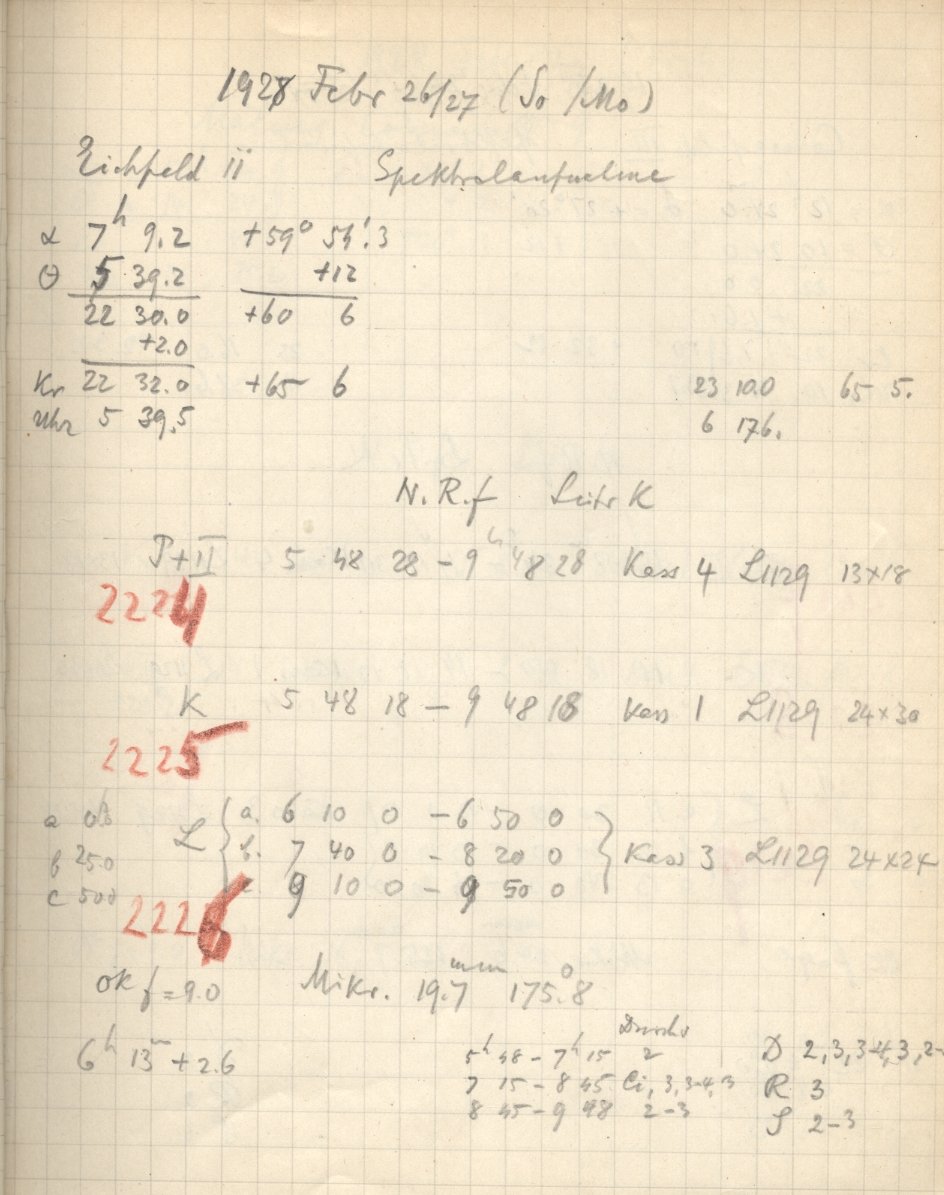 1928 Febr 26/27 (So/Mo)
Eichfeld II Spektralaufnahme
α 7h 9.2 +59° 54!3
θ 5 39.2 +12
22 30.0 +60 6
+2.0
Kr 22 32.0 +65 6 23 10.0 65 5.
Uhr 5 39.5 6 17.6.
N.R.f Leitr K
P+II 5 48 28 – 9h 48 28 Kass 4 L1129 13×18
2224
K 5 48 18 – 9 48 18 Kass 1 L1129 24×30
2225
a 0.8 a. 6 10 0 – 6 50 0
b 25.0 L b. 7 40 0 – 8 20 0 Kass 3 L1129 24×24
c 500 c. 9 10 0 – 9 50 0
2226
ok f=9.0 Mikr. 19.7mm 175°.8
Durchs
6h 13m +2.6 5h 48 – 7h 15 2 D 2,3,3-4,3,2-
7 15 – 8 45 Ci, 3, 3-4, 3 R 3
8 45 – 9 48 2-3 S 2-3